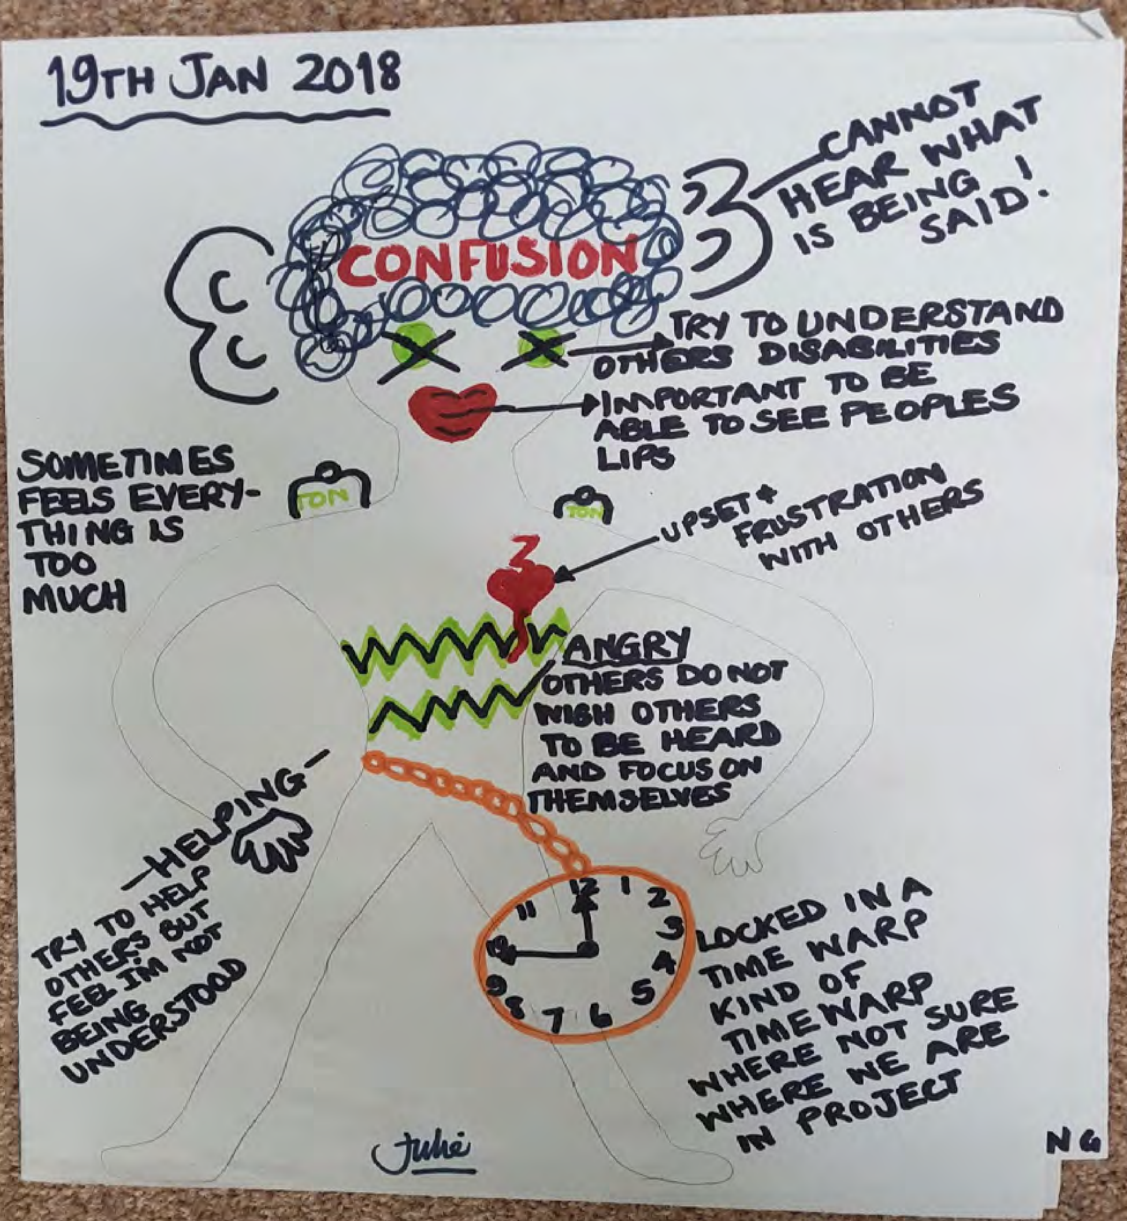 19TH JAN 2018
CANNOT
HEAR WHAT
IS BEING
SAID!
CONFUSION
TRY TO UNDERSTAND
OTHERS DISABILITIES
IMPORTANT TO BE
ABLE TO SEE PEOPLES
LIPS
SOMETIMES
FEELS EVERY-
THING IS
TOO
MUCH
TON
TON
UPSET +
FRUSTRATION
WITH OTHERS
ANGRY
OTHERS DO NOT
WISH OTHERS
TO BE HEARD
AND FOCUS ON
THEMSELVES
HELPING
TRY TO HELP
OTHERS BUT
FEEL I'M NOT
BEING
UNDERSTOOD
12
1
2
3
4
5
6
7
8
9
10
11
LOCKED IN A
TIME WARP
KIND OF
TIME WARP
WHERE NOT SURE
WHERE WE ARE
IN PROJECT
Julie
NG